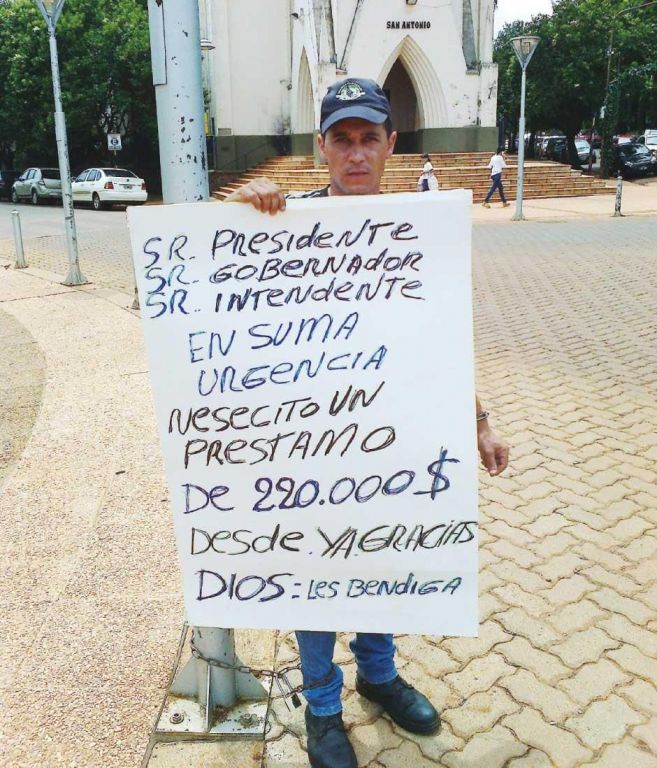 SAN ANTONIO
SR. PRESIDENTE
SR. GOBERNADOR
SR. INTENDENTE
EN SUMA
URGENCIA
NESECITO UN
PRESTAMO
DE 220.000$
DESDE. YA.GRACIAS
DIOS = LES BENDIGA